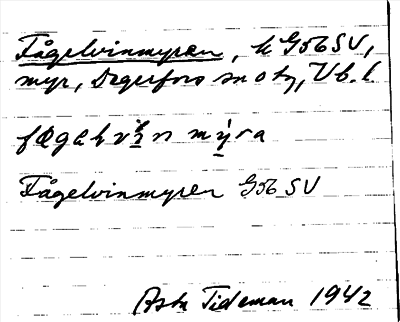 Fågelvinmyren, k G56SV,
myr, Degerfors sn o tg, Vb. l.
Fågelvinmyren G56 SV
Tideman 1942